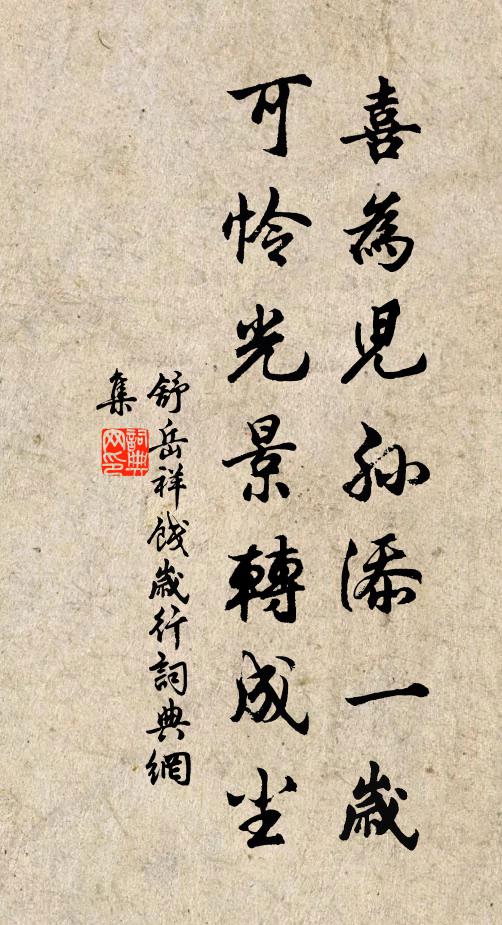 喜為児孙添一歲
可怜光景轉成尘
舒岳祥餞歲行詞典網
集
詞典网印